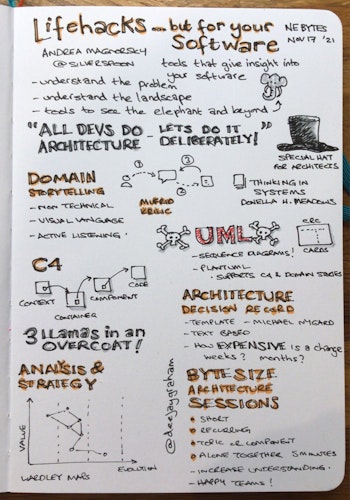 Lifehacks ... but for your
Software
NEBYTES
NOV 17 '21
ANDREA MAGNORSKY
@SILVERSPOON
tools that give insight into
your software
- understand the problem
- understand the landscape
- tools to see the elephant and beyond
"ALL DEVS DO
ARCHITECTURE - LETS DO IT
DELIBERATELY!"
SPECIAL HAT
FOR ARCHITECTS
DOMAIN
STORYTELLING
- NON TECHNICAL
- VISUAL LANGUAGE
- ACTIVE LISTENING.
1
2
3
THINKING IN
SYSTEMS
DONELLA H. MEADOWS
UML
- SEQUENCE DIAGRAMS!
- PLANTUML
- SUPPORTS C4 & DOMAIN STORIES
CRC
CARDS
C4
CONTEXT
CONTAINER
COMPONENT
CODE
3 llamas in an
OVERCOAT!
ARCHITECTURE
DECISION RECORD
- TEMPLATE - MICHAEL NYGARD
- TEXT BASED
- HOW EXPENSIVE is a change
weeks? months?
ANALYSIS &
STRATEGY
VALUE
EVOLUTION
WARDLEY MAPS
@deejaygraham
BYTESIZE
ARCHITECTURE
SESSIONS
SHORT
RECURRING
TOPIC OR COMPONENT
ALONE TOGETHER 5 MINUTES
- INCREASE UNDERSTANDING.
- HAPPY TEAMS!